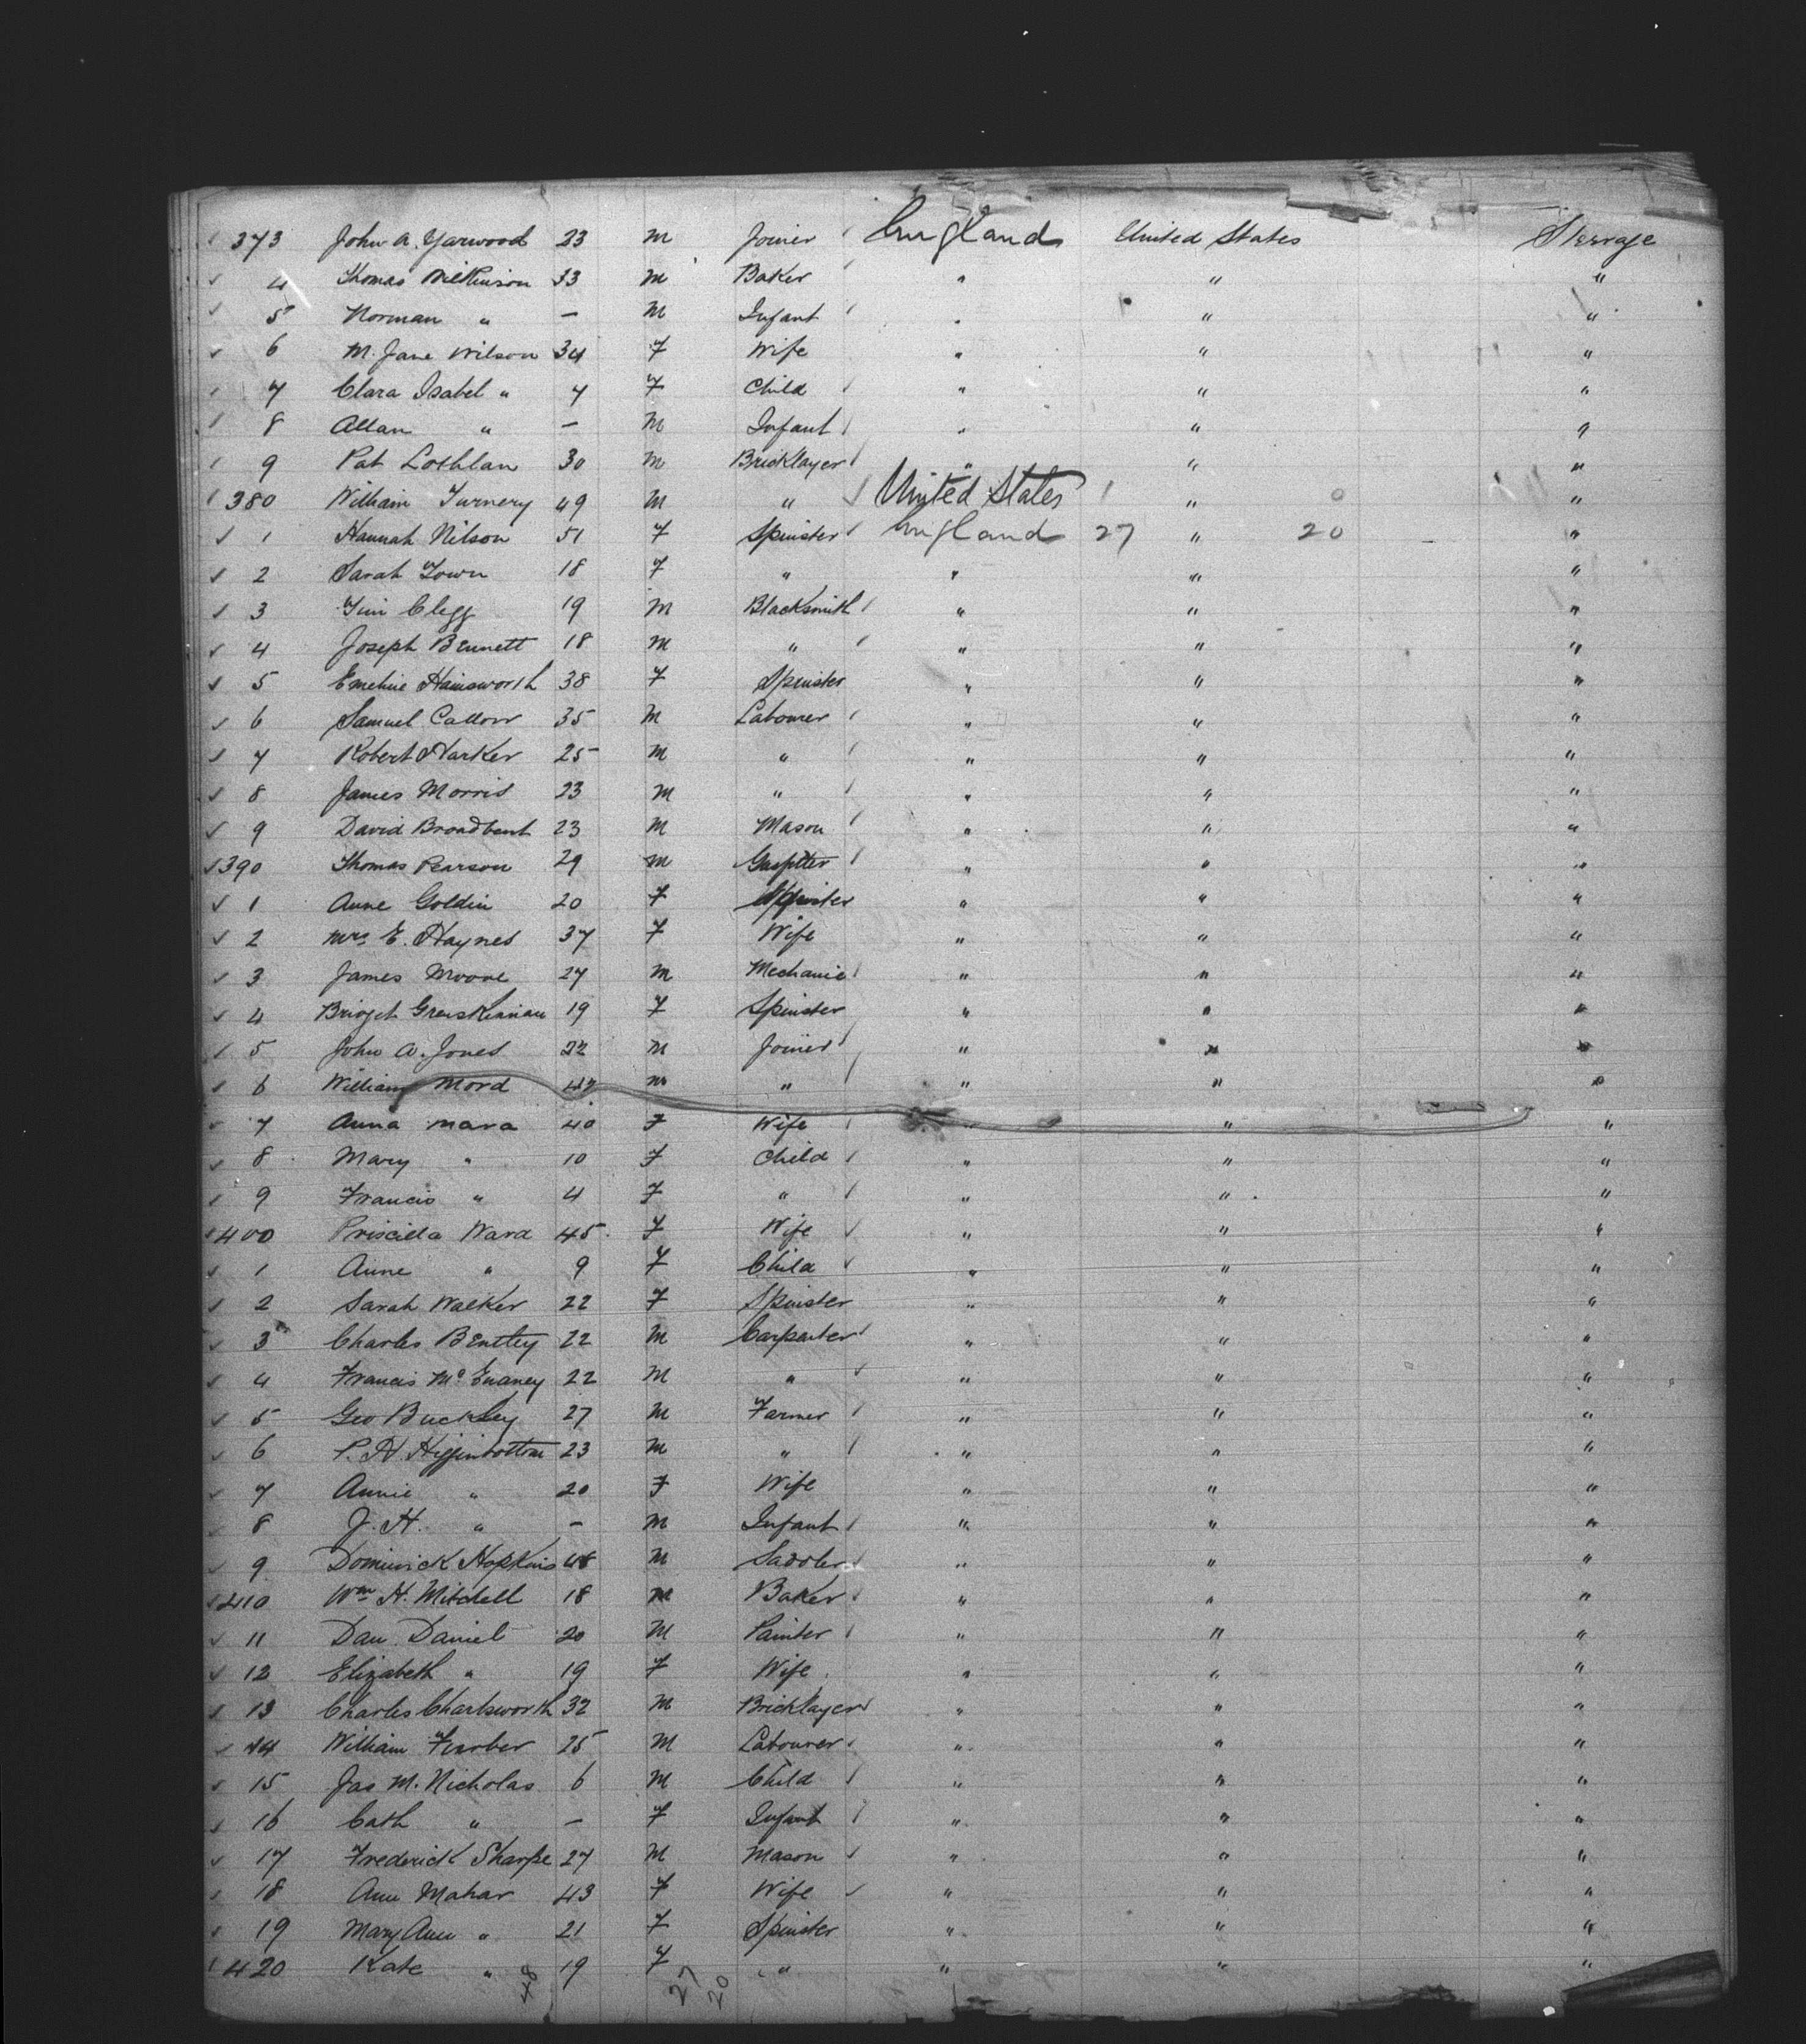 373 John A. Yarwood 23 M Joiner England United States Steerage
4 Thomas Wilkinson 33 M Baker " " "
5 Norman " – M Infant " " "
6 M. Jane Wilson 34 F Wife " " "
7 Clara Isabel " 4 F Child " " "
8 Allan " – M Infant " " "
9 Pat Lothlan 30 M Bricklayer " " "
380 William Turnery 49 M " United States 1 " 0 "
1 Hannah Nilson 51 F Spinster England 27 " 20 "
2 Sarah Town 18 F " " " "
3 Jim Clegg 19 M Blacksmith " " "
4 Joseph Bennett 18 M " " " "
5 Emeline Hainsworth 38 F Spinster " " "
6 Samuel Callow 35 M Labourer " " "
7 Robert Harker 25 M " " " "
8 James Morris 23 M " " " "
9 David Broadbent 23 M Mason " " "
390 Thomas Pearson 29 M Gasfitter " " "
1 Anne Goldin 20 F Spinster " " "
2 Mrs E. Haynes 37 F Wife " " "
3 James Moore 27 M Mechanic " " "
4 Bridget 19 F Spinster " " "
5 John A. Jones 22 M Joiner " " "
6 William Mord 42 M " " " "
7 Anna Mara 40 F Wife " " "
8 Mary " 10 F Child " " "
9 Francis " 4 F " " " "
400 Priscilla Ward 45 F Wife " " "
1 Anne " 9 F Child " " "
2 Sarah Walker 22 F Spinster " " "
3 Charles Bentley 22 M Carpenter " " "
4 Francis McEnaney 22 M " " " "
5 Geo Buckley 27 M Farmer " " "
6 P. H Higginbottom 23 M " " " "
7 Annie " 20 F Wife " " "
8 J. H. " – M Infant " " "
9 Dominick Hopkins 48 M Saddler " " "
410 Wm H. Mitchell 18 M Baker " " "
11 Dan Daniel 20 M Painter " " "
12 Elizabeth " 19 F Wife " " "
13 Charles Charlsworth 32 M Bricklayer " " "
14 William Furber 25 M Labourer " " "
15 Jas M. Nicholas 6 M Child " " "
16 Cath " – F Infant " " "
17 Frederick Sharpe 27 M Mason " " "
18 Ann Mahar 43 F Wife " " "
19 Mary Ann " 21 F Spinster " " "
420 Kate " 19 F " " " "
48 27 20